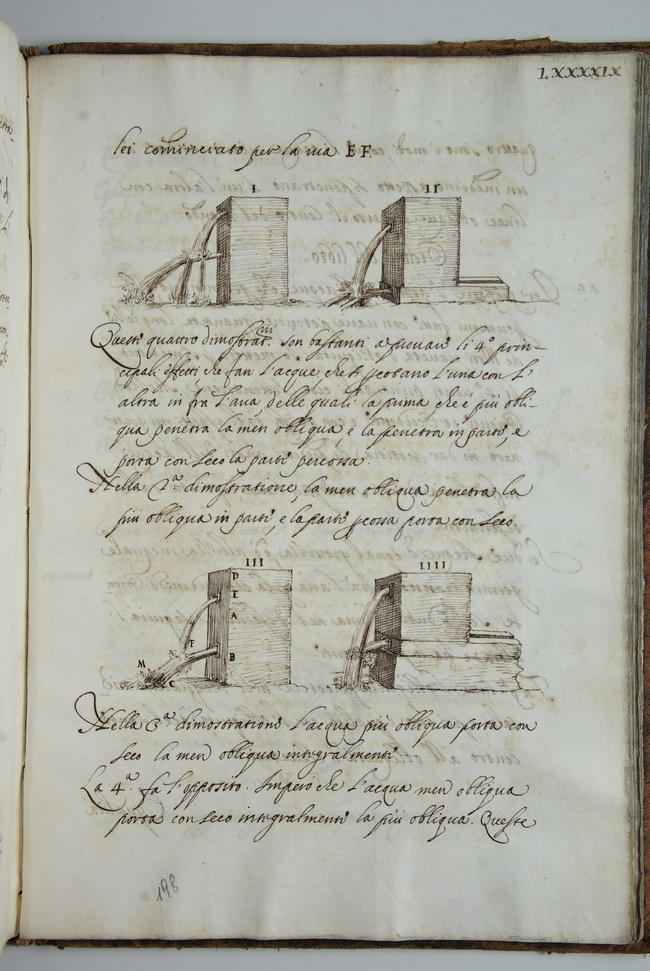 LXXXXIX
lei cominciato per la via E F
I
II
Questi quattro dimostrat.ni son bastanti a provare li 4º prin-
cipali effetti che fan l'acque, che si percotano l'una con l'
altra in fra l'aria, delle quali la prima che é piú obli-
qua penetra la men obliqua, e la penetra in parti, e
porta con seco la parti percossa.
Nella 2ª dimostratione la men obliqua penetra la
piú obliqua in parti, e la parti pcossa porta con seco.
III
IIII
D
E
A
F
B
M
C
Nella 3ª dimostrationi l'acqua piú obliqua porta con
seco la men obliqua integralmenti
La 4ª fa l'opposito. Impero che l'acqua men obliqua
porta con seco integralmenti la piú obliqua. Queste
198